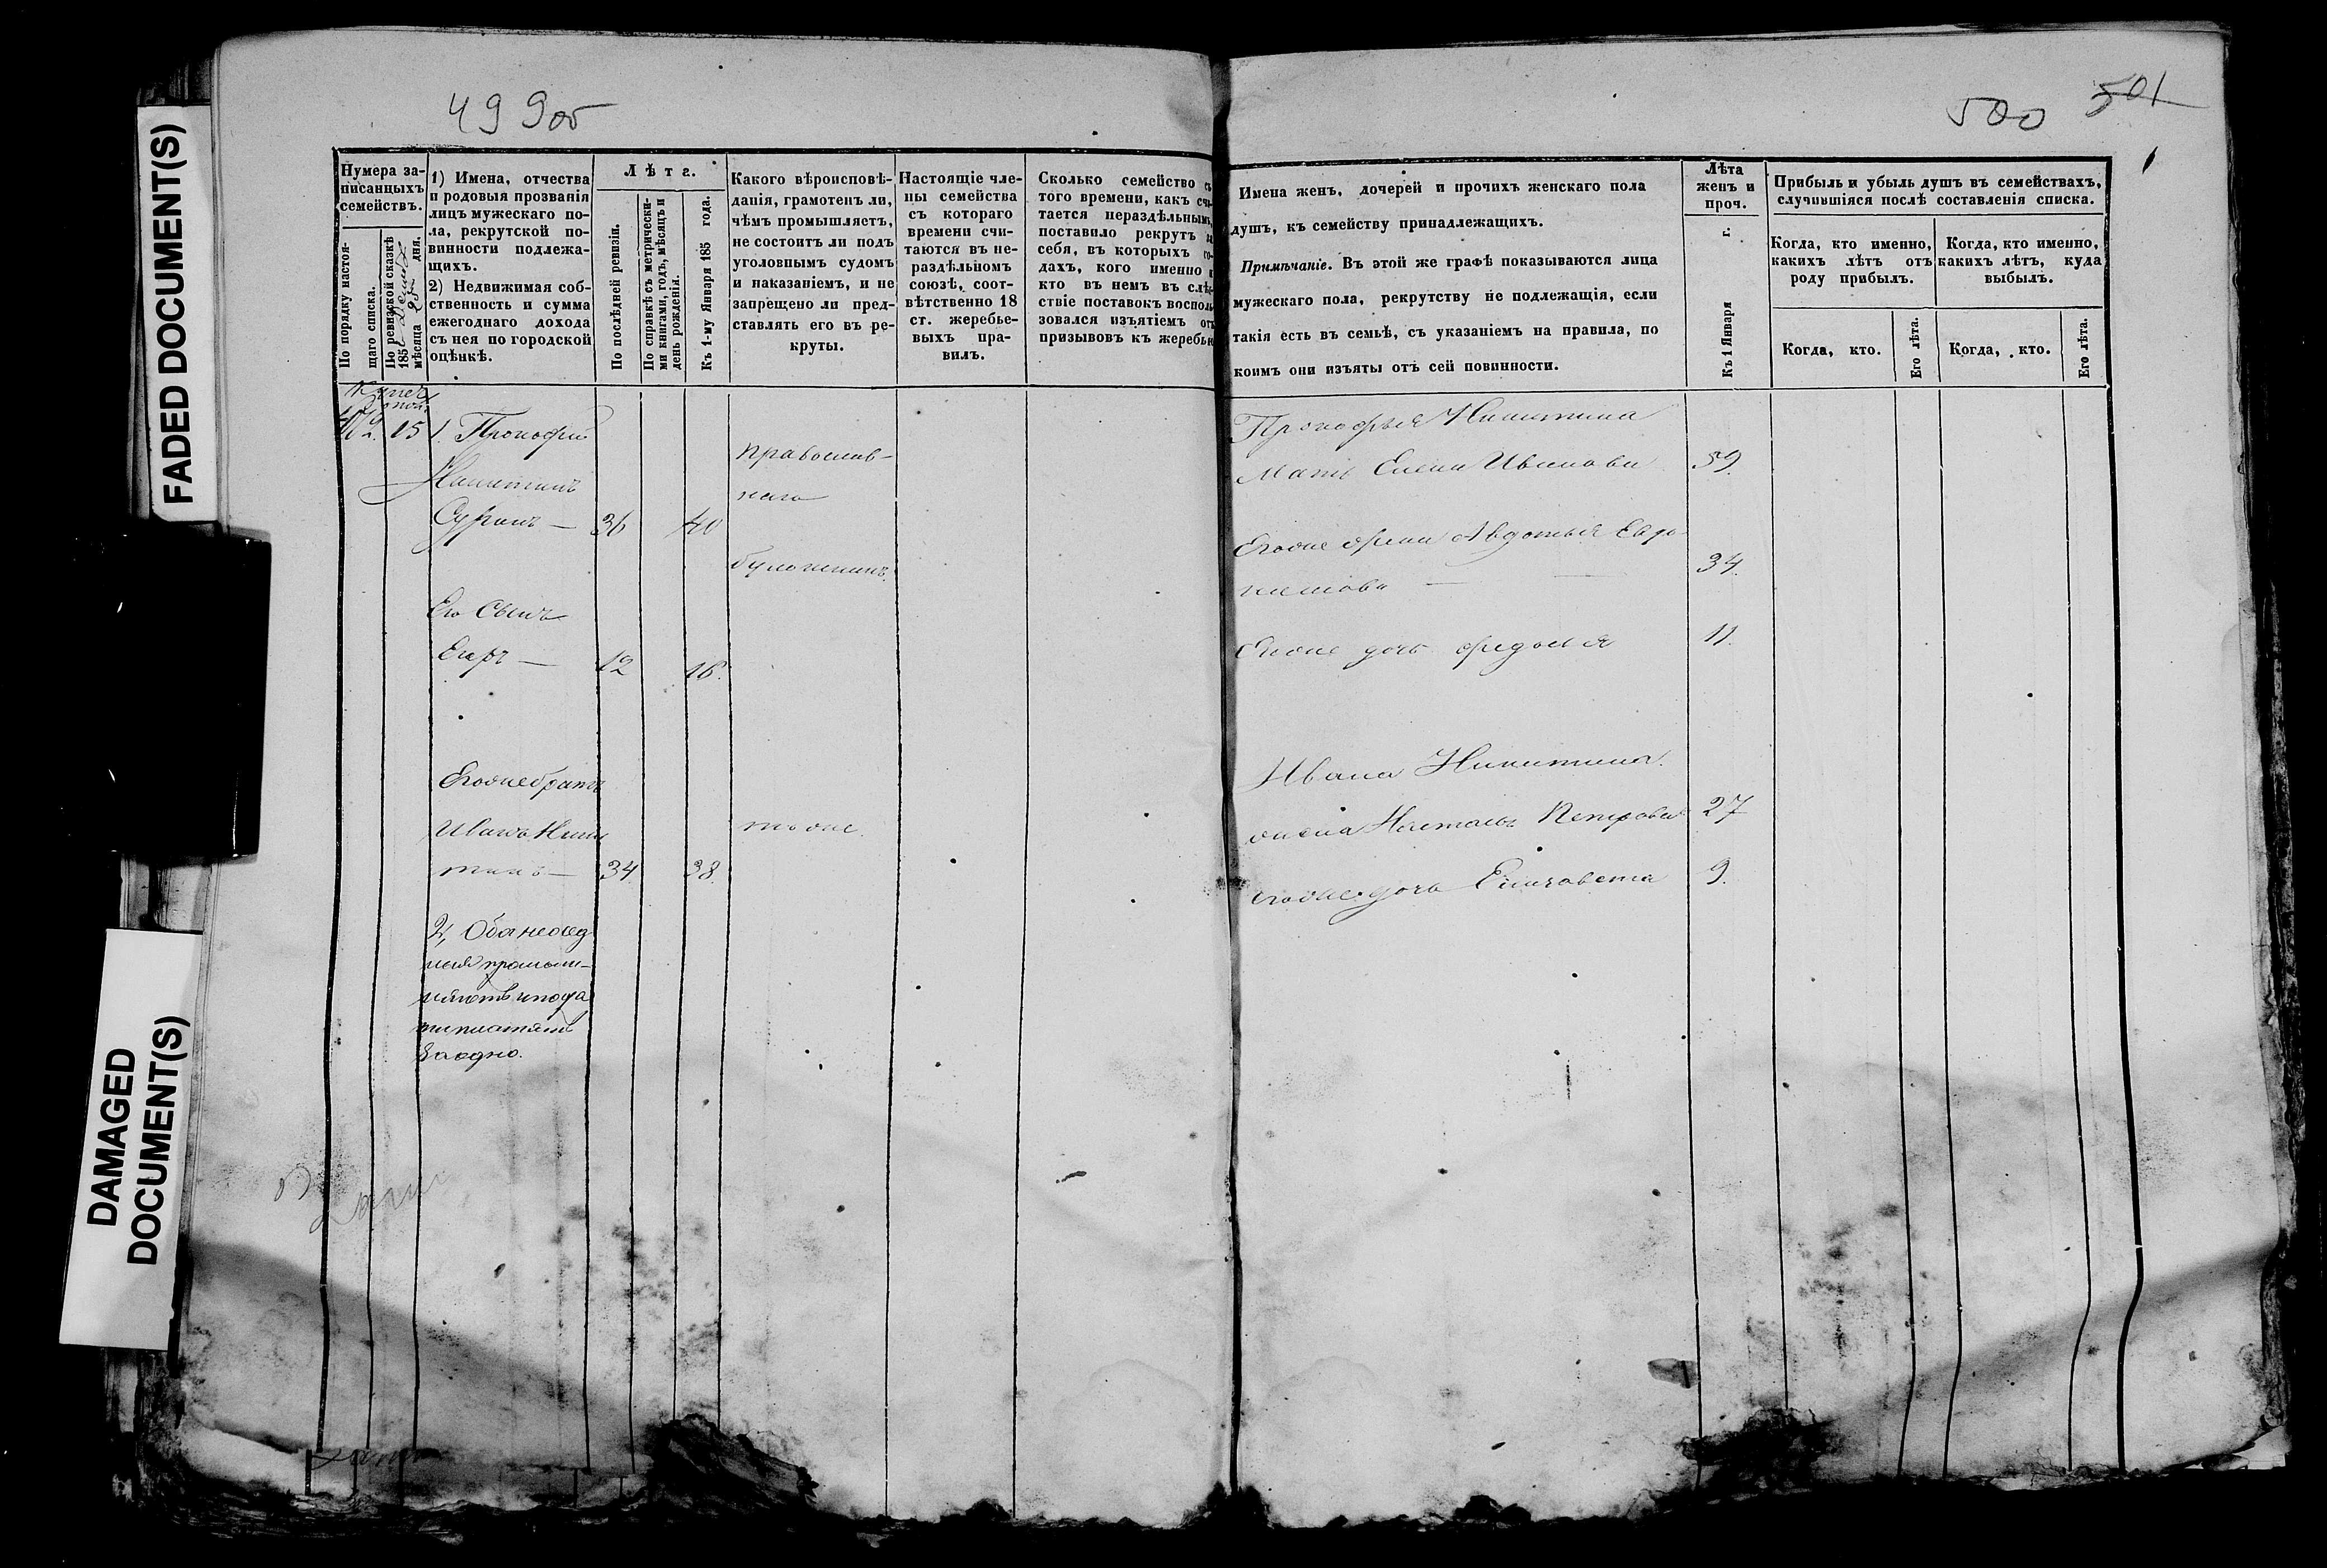 FADED DOCUMENT(S)
DAMAGED
DOCUMENT(S)
499об
Нумера за-
писанныхъ
семействъ.
По порядку настоя-
щаго списка.
По ревизской сказкѣ
185 
мѣсяца дня.
1) Имена, отчества
и родовыя прозванія
лицъ мужескаго по-
ла, рекрутской по-
винности подлежа-
щихъ.
2) Недвижимая соб-
ственность и сумма
ежегоднаго дохода
съ нея по городской
оцѣнкѣ.
Лѣта.
По послѣдней ревизіи.
По справкѣ съ метрически-
ми книгами, годъ, мѣсяцъ и
день рожденія.
Къ 1-му Января 185 года.
Какого вѣроисповѣ-
данія, грамотенъ ли,
чѣмъ промышляетъ,
не состоитъ ли подъ
уголовнымъ судомъ
и наказаніемъ, и не
запрещено ли пред-
ставлять его въ ре-
круты.
Настоящіе чле-
ны семейства
съ котораго
времени счи-
таются въ не-
раздѣльномъ
союзѣ, соот-
вѣтственно 18
ст. жеребье-
выхъ пра-
вилъ.
Сколько семейство съ
того времени, какъ счи-
тается нераздѣльнымъ,
поставило рекрутъ за
себя, въ которыхъ го-
дахъ, кого именно и
кто въ немъ въ слѣд-
ствіе поставокъ восполь-
зовался изъятіемъ отъ
призывовъ къ жеребью
15
1. Прокофій
Никитинъ
Суринъ — 36 40
православ-
наго
булочникъ.
Его Сынъ
Егоръ — 12 16.
Егоже братъ
Иванъ Ники
тинъ — 34 38.
тоже.
2, Оба неосед
лыя промыш-
ляютъ и пода
ти платятъ
Заодно.
500 501
Имена женъ, дочерей и прочихъ женскаго пола
душъ, къ семейству принадлежащихъ.
Примѣчаніе. Въ этой же графѣ показываются лица
мужескаго пола, рекрутству не подлежащія, если
такія есть въ семьѣ, съ указаніемъ на правила, по
коимъ они изъяты отъ сей повинности.
Лѣта
женъ и
проч.
Къ 1 Января г.
Прибыль и убыль душъ въ семействахъ,
случившіяся послѣ составленія списка.
Когда, кто именно,
какихъ лѣтъ отъ
роду прибылъ.
Когда, кто именно,
какихъ лѣтъ, куда
выбылъ.
Когда, кто.
Его лѣта.
Когда, кто.
Его лѣта.
Прокофья Никитина
Мать Елена Иванова 59.
Егоже жена Авдотья Евдо-
кимова — 34.
Егоже дочь Федосья 11.
Ивана Никитина.
жена Наталья Петрова 27
егоже дочь Елизавета 9.